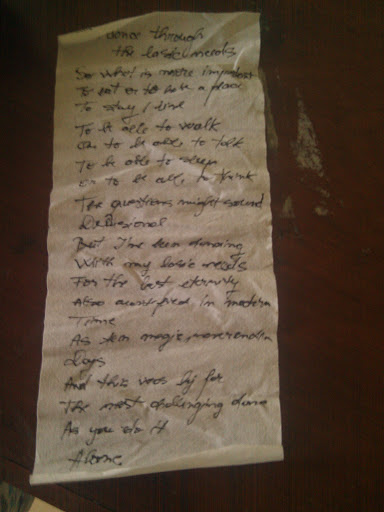 Dance through
the basic needs
So what is more important
To eat or to have a place
To stay / live
To be able to walk
Or to be able to talk
To be able to sleep
or to be able to think
The questions might sound
Delusional
But I've been dancing
With my basic needs
For the last eternity
Also quantified in modern
Time
As ten magic neverending
days
And this was by far
The most challenging dance
As you do it
Alone